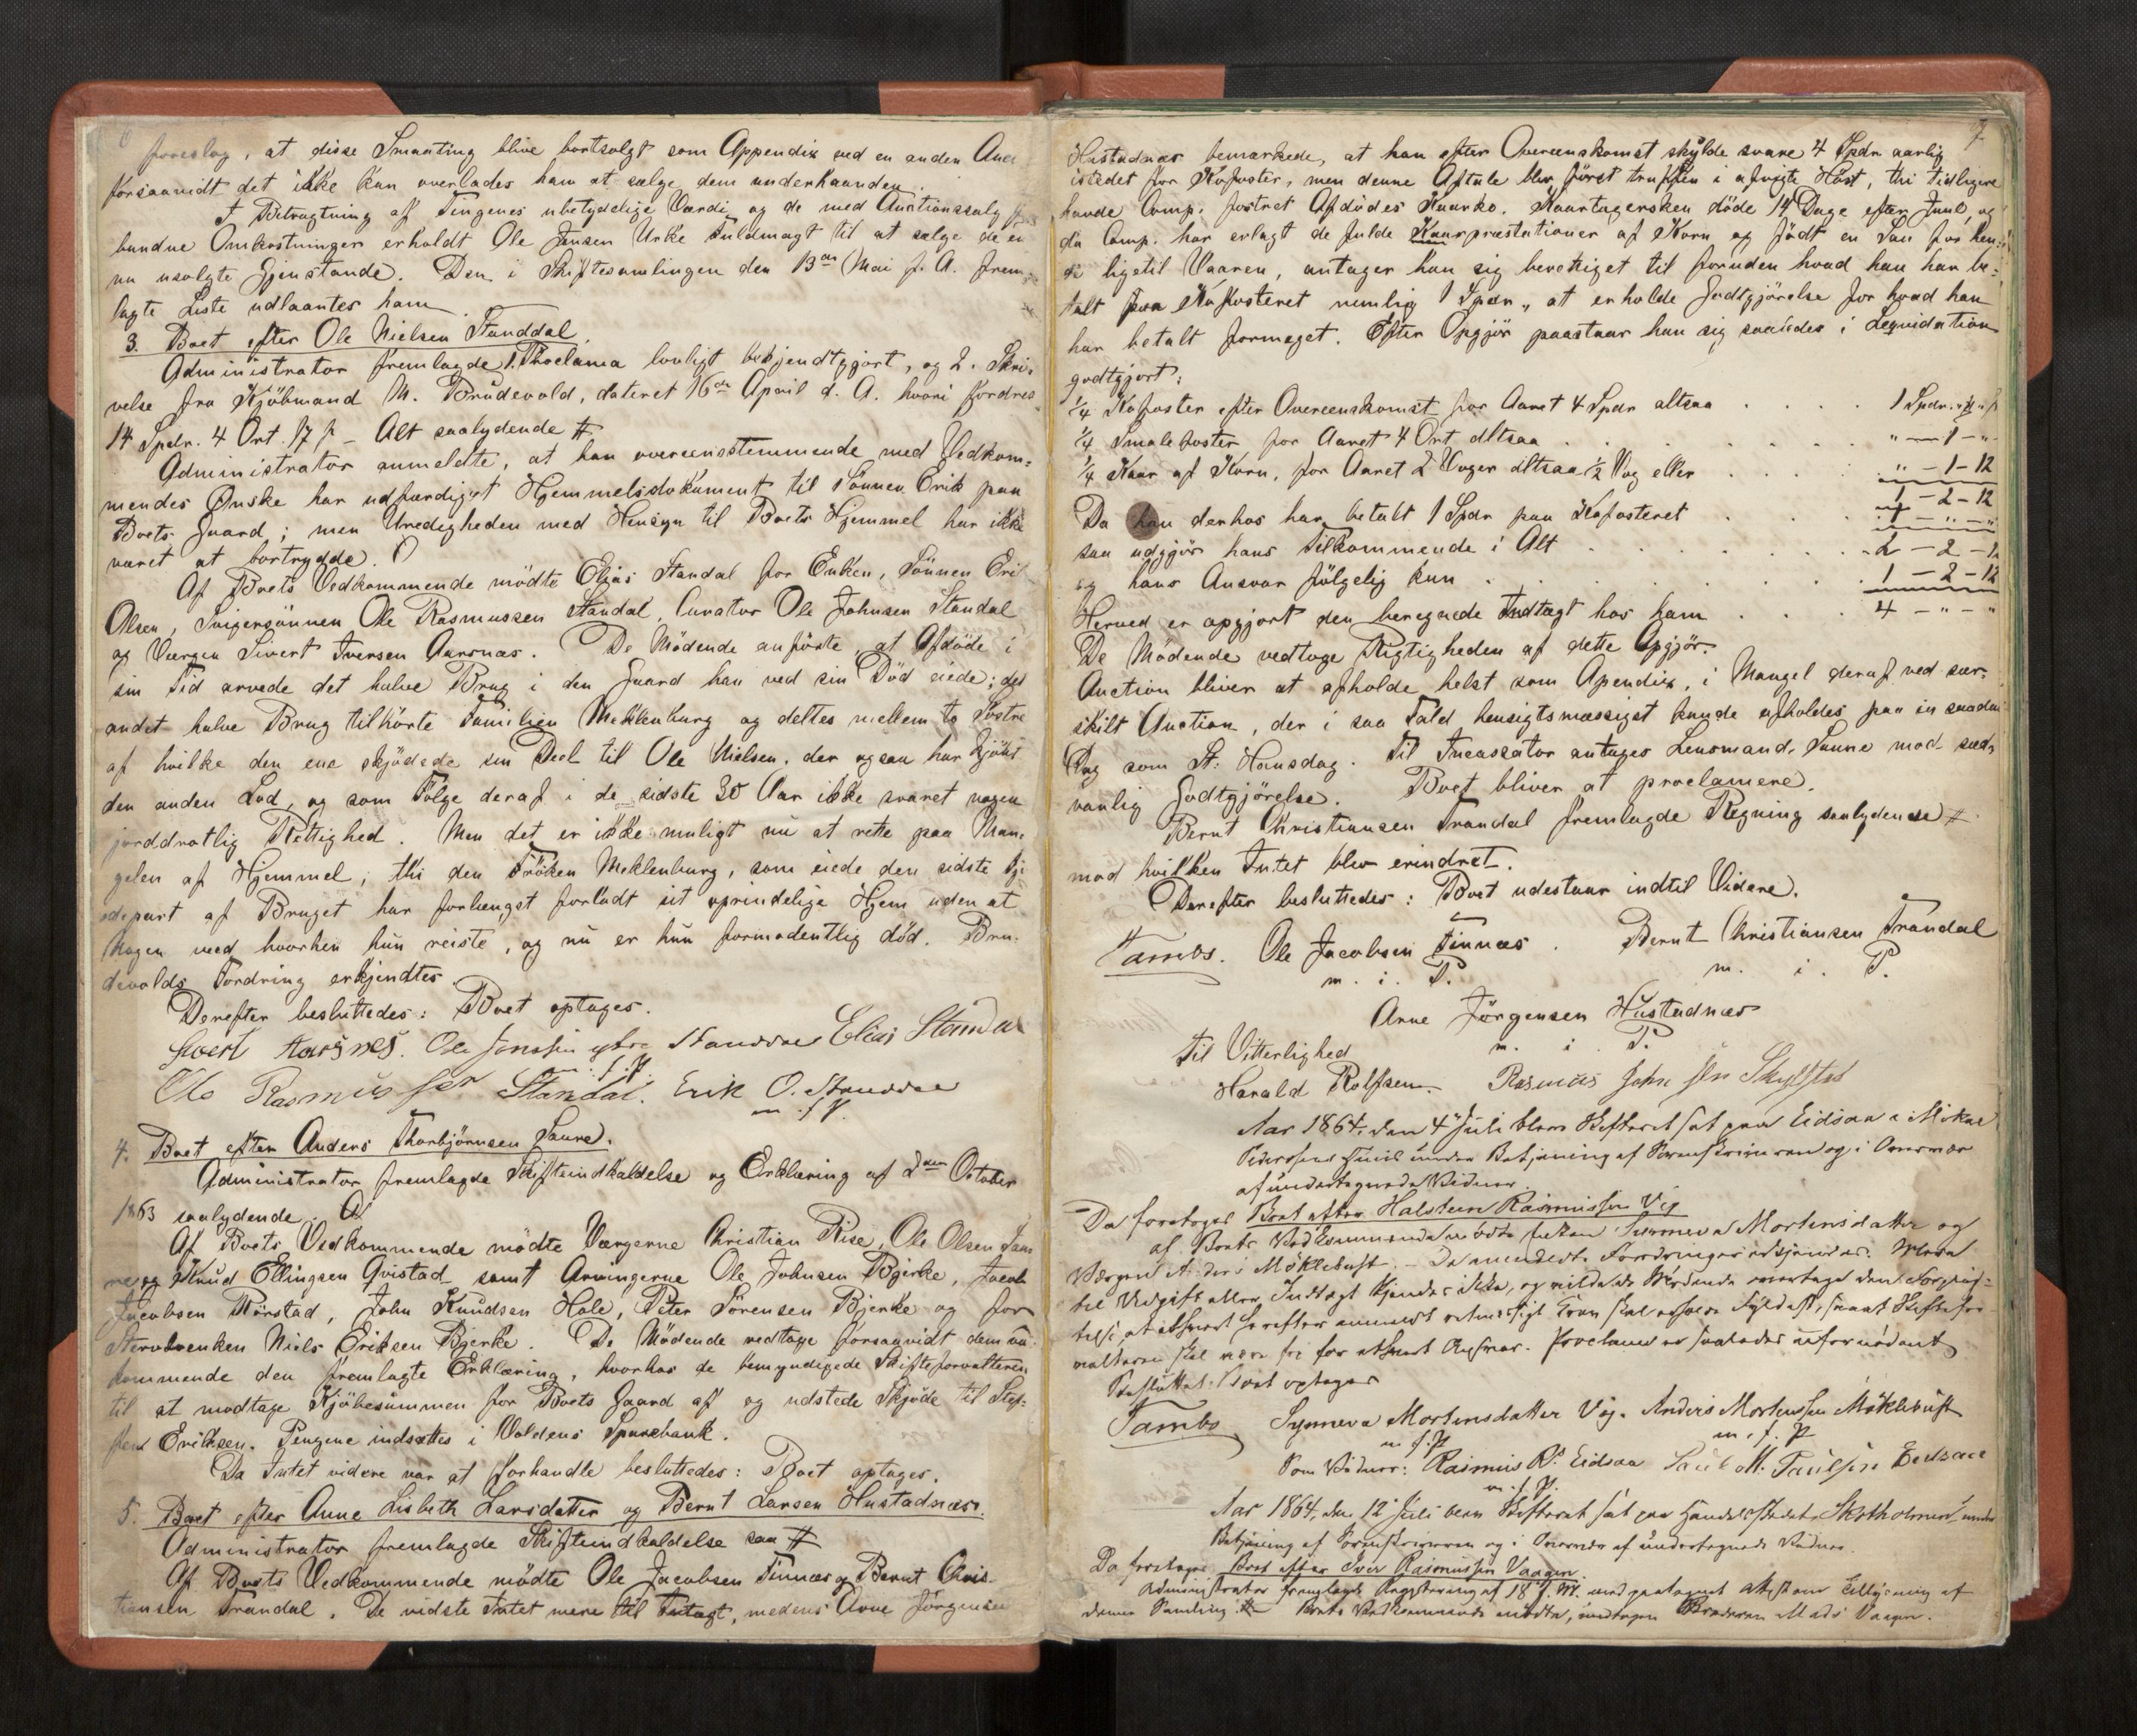 6
foreslog, at disse Smaating blive bortsolgt som Appendix ved en anden Auc
forsaavidt det ikke kan overlades ham at sælge dem underhaanden.
I Betragtning af Tingenes ubetydelige Værdi og de med Auctionssalg
bundne Omkostninger erholdt Ole Jensen Urke Fuldmagt til at sælge de en
nu usolgte Gjenstande. Den i Skiftesamlingen den 13de Mai f. A. frem-
lagte Liste udlaantes ham
3. Boet efter Ole Nielsen Standdal
Administrator fremlagde 1. Proclama lovligt bekjendtgjort, og 2. Skri-
velse fra Kjöbmand M. Brudevold, dateret 16de April d. A. hvori fordres
14 Spdr. 4 Ort. 17 ß – Alt saalydende #
Administrator anmeldte, at han overensstemmende med Vedkom-
mendes Ønske har udfærdiget Hjemmelsdokument til Sönnen Erik paa
Boets Gaard; men Uredigheden med Hensyn til Boets Hjemmel har ikke
været at bortrydde.
Af Boets Vedkommende mödte Elias Standal for Enken, Sönnen Eri
Olsen, Svigersönnen Ole Rasmussen Standal, Curator Ole Johnsen Standal
og Værgen Sivert Iversen Aarsnæs. De Mödende anförte, at Afdöde i
sin Tid arvede det halve Brug i den Gaard han ved sin Död eiede; det
andet halve Brug tilhörte Familien Meklenburg og deltes mellem to Söstre
af hvilke den ene skjödede sin Deel til Ole Nielsen, der ogsaa har kjöbt
den anden Lod, og som Fölge deraf i de sidste 30 Aar ikke svaret nogen
jorddrotlig Rettighed. Men det er ikke muligt nu at rette paa Man-
gelen af Hjemmel, thi den Fröken Meklenburg, som eiede den sidste Fje
depart af Bruget har forlængst forladt sit oprindelige Hjem uden at
Nogen veed hvorhen hun reiste, og nu er hun formodentlig död. Bru-
devolds Fordring erkjendtes
Derefter besluttedes: Boet optages.
Sivert Aarsnes. Ole Jonsen ytre Standal Elias Standal
m. f. P.
Ole Rasmussen Standal. Erik O. Standal
m. f. P.
4. Boet efter Anders Thorbjörnsen Saure.
Administrator fremlagde Skifteindkaldelse og Erklæring af 2den October
1863 saalydende
Af Boets Vedkommende mödte Værgerne Christian Riise, Ole Olsen Sau
re og Knud Ellingsen Qvistad samt Arvingerne Ole Johnsen Bjerke, Jacob
Jacobsen Rörstad, John Knudsen Hole, Peter Sörensen Bjerke og for
Stervboenken Niels Eriksen Bjerke. De Mödende vedtoge forsaavidt dem an-
kommende den fremlagte Erklæring, hvorhos de bemyndigede Skifteforvalteren
til at modtage Kjöbesummen for Boets Gaard af og udstede Skjöde til Stef-
fen Eriksen. Pengene indsættes i Voldens Sparebank.
Da Intet videre var at forhandle besluttedes: Boet optages.
5. Boet efter Anne Lisbeth Larsdatter og Bernt Larsen Hustadnæs.
Administrator fremlagde Skifteindkaldelse saa #
Af Boets Vedkommende mödte Ole Jacobsen Finnæs og Bernt Chris-
tiansen Trandal. De vidste Intet mere til Indtægt, medens Arne Jörgensen
7
Hustadnæs bemærkede, at han efter Overenskomst skylde svare 4 Spdr aarlig
istedet for Kofoster, men denne Aftale blev först truffen i afvigte Höst, thi tidligere
havde Comp. fostret Afdödes Kaarko. Kaartagersken döde 14 Dage efter Juul, og
da Comp. har erlagt de fulde Kaarpræstationer af Korn og födt en Sau for hen-
de ligetil Vaaren, antager han sig berettiget til foruden hvad han har be-
talt paa Kofosteret nemlig 1 Spdr., at erholde Godtgjörelse for hvad han
har betalt formeget. Efter Opgjör paastaar han sig saaledes i Leqvidation
godtgjort:
1/4 Kofoster efter Overenskomst for Aaret 4 Spdr altsaa . . . . 1 Spdr. " ß " ß
1/4 Smalefoster for Aaret 4 Ort altsaa . . . . " – 1 – "
1/4 Kaar af Korn, for Aaret 2 Voger altsaa 1/2 Vog eller . . . . " – 1 – 12
1 – 2 – 12
Da han derhos har betalt 1 Spdr paa Kofosteret . . . 1 – " – "
saa udgjör hans Tilkommende i Alt . . . . 2 – 2 – 12
og hans Ansvar fölgelig kun . . . . 1 – 2 – 12
Herved er opgjort den beregnede Indtægt hos ham . . . 4 – " – "
De Mödende vedtoge Rigtigheden af dette Opgjör.
Auction bliver at afholde helst som Apendix, i Mangel deraf ved sær-
skilt Auction, der i saa Fald hensigtsmæssigst kunde afholdes paa en saadan
Dag som St. Hansdag. Til Incassator antages Lensmand Saure mod sæd-
vanlig Godtgjörelse. Boet bliver at proclamere.
Bernt Kristiansen Trandal fremlagde Regning saalydende #
mod hvilken Intet blev erindret.
Derefter besluttedes: Boet udestaar indtil Videre.
Tambs. Ole Jacobsen Finnæs. Bernt Christiansen Trandal
m. i. P. m. i. P.
Arne Jörgensen Hustadnæs
m. i. P.
Til Vitterlighed
Harald Rolfsen. Rasmus Johnsen Skylstad
Aar 1864, den 4 Juli blev Skifteret sat paa Eidsaa i Mikal
Pederssens Huus under Betjening af Sorenskriveren og i Overvær
af undertegnede Vidner.
Da foretoges Boet efter Halsteen Rasmussen Vig
af Boets Vedkommende mödte Enken Synneva Mortensdatter og
Værgen Anders Möklebust. – De anmeldte Fordringer erkjendes. Mere
til Udgift eller Indtægt kjendes ikke, og vilde de Mödende overtage den Forplig-
telse, at ethvert herefter anmeldt retmæssigt Krav skal erholde Fyldest, samt Skiftefor-
valteren skal være fri for ethvert Ansvar. Proclama er saaledes ufornödent
Besluttet: Boet optages
Tambs Synneva Mortensdatter Vig. Anders Mortenssen Möklebust
m. f. P. m. f. P.
Som Vidner: Rasmus R. Eidsaa Paul M. Paulsen Eidsaa
m. f. P.
Aar 1864, den 12 Juli blev Skifteret sat paa Handelsstedet Skotholmen under
Betjening af Sorenskriveren og i Overvær af undertegnede Vidner.
Da foretoges Boet efter Iver Rasmussen Vaagen.
Administrator fremlagde Registrering af 18 f. M. med paategnet Attest om Tillysning af
denne Samling # Boets Vedkommende mödte, undtagen Broderen Mads Vaagen.